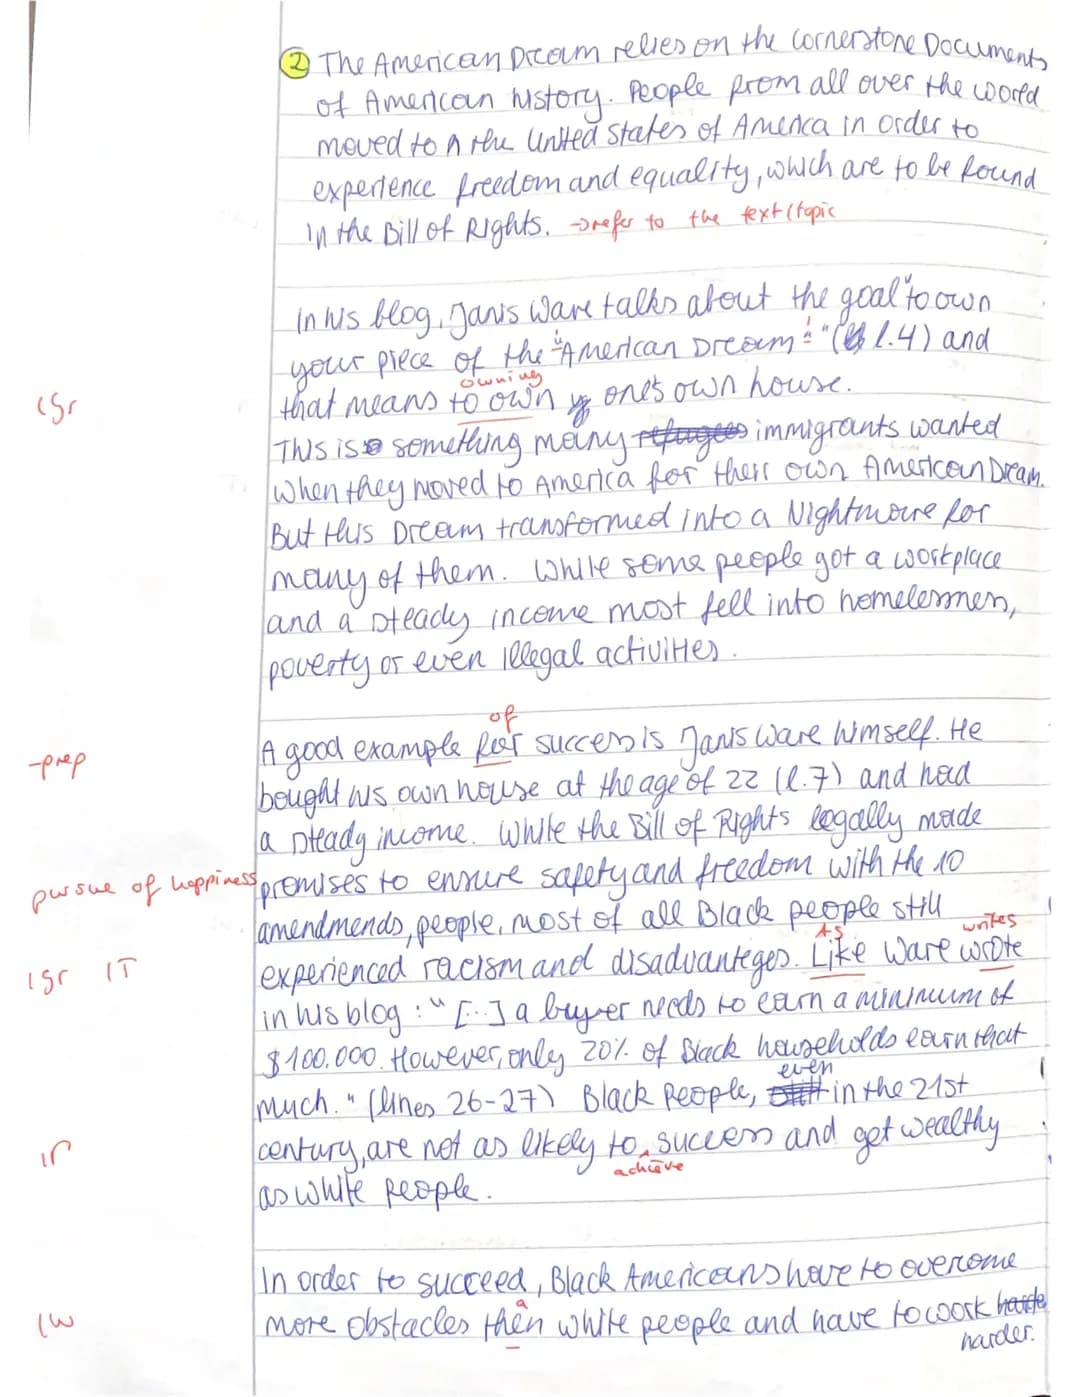 ② The American Dream relies on the Cornerstone Documents
of American history. People from all over the world
moved to the United States of America in order to
experience freedom and equality, which are to be found
in the Bill of Rights. → refer to the text/topic
In his blog, Janis Ware talks about the goal "to own
your piece of the 'American Dream'" (l.4) and
owning
(Gr that means to own one's own house.
This is something many refugees immigrants wanted
when they moved to America for their own American Dream.
But this Dream transformed into a Nightmare for
many of them. While some people got a workplace
and a steady income most fell into homelessness,
poverty or even illegal activities.
of
-prep A good example for success is Janis Ware himself. He
bought his own house at the age of 22 (l.7) and had
a steady income. While the Bill of Rights legally made
pursue of happiness promises to ensure safety and freedom with the 10
amendmends, people, most of all Black people still
As writes
1Gr 1T experienced racism and disadvanteges. Like Ware wrote
in his blog: "[...] a buyer needs to earn a minimum of
$100.000. However, only 20% of Black households earn that
even
much." (lines 26-27) Black People, still in the 21st
1r century, are not as likely to success and get wealthy
achieve
as white people.
In order to succeed, Black Americans have to overcome
a
1W more obstacles then white people and have to work harde
harder.